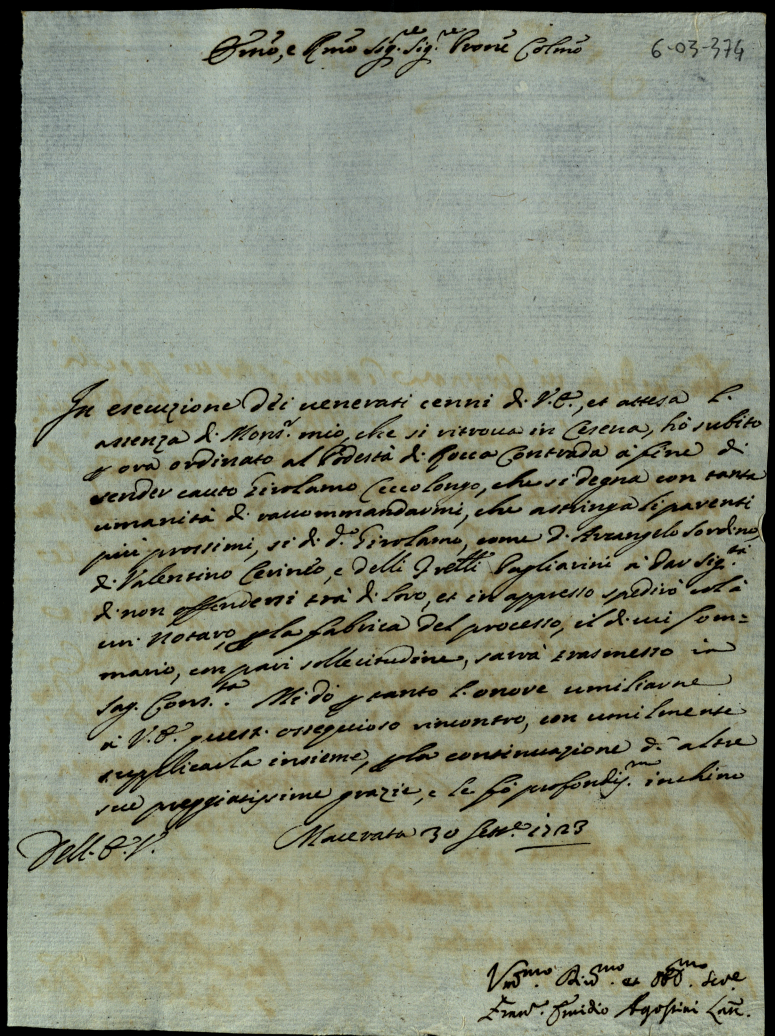 Emo, e Rmo Sig.re Sig.re Prone Colmo
6-03-374
In esecuzione dei venerati cenni di V.E., et attesa l'
assenza di Mons.r mio, che si ritrova in Cesena, hò subito
p ora ordinato al Podestà di Rocca Contrada à fine di
render cauto Girolamo Ceccolongo, che si degna con tanta
umanità di raccommandarmi, che astringa li parenti
più prossimi, sì di d.o Girolamo, come d'Arcangelo Sordino,
di Valentino Cerineo, e delli Frelli Pagliarini à dar sig.tà
di non offendersi trà di loro, et in appresso spedirò colà
un Notaro, p la fabrica del processo, il di cui som=
mario, con pari sollecitudine, sarrà trasmesso in
Sag. Cons.ta. Mi dò p tanto l'onore umiliarne
à V.E. quest'ossequioso rincontro, con umilmente
supplicarla insieme, p la continuazione d'altre
sue preggiatissime grazie, e le fò profondis.mo inchino
Dell'E.V. Macerata 30 Sett.e 1723
Um.mo Div.mo et Obb.mo Ser.e
Fran.o Emidio Agostini